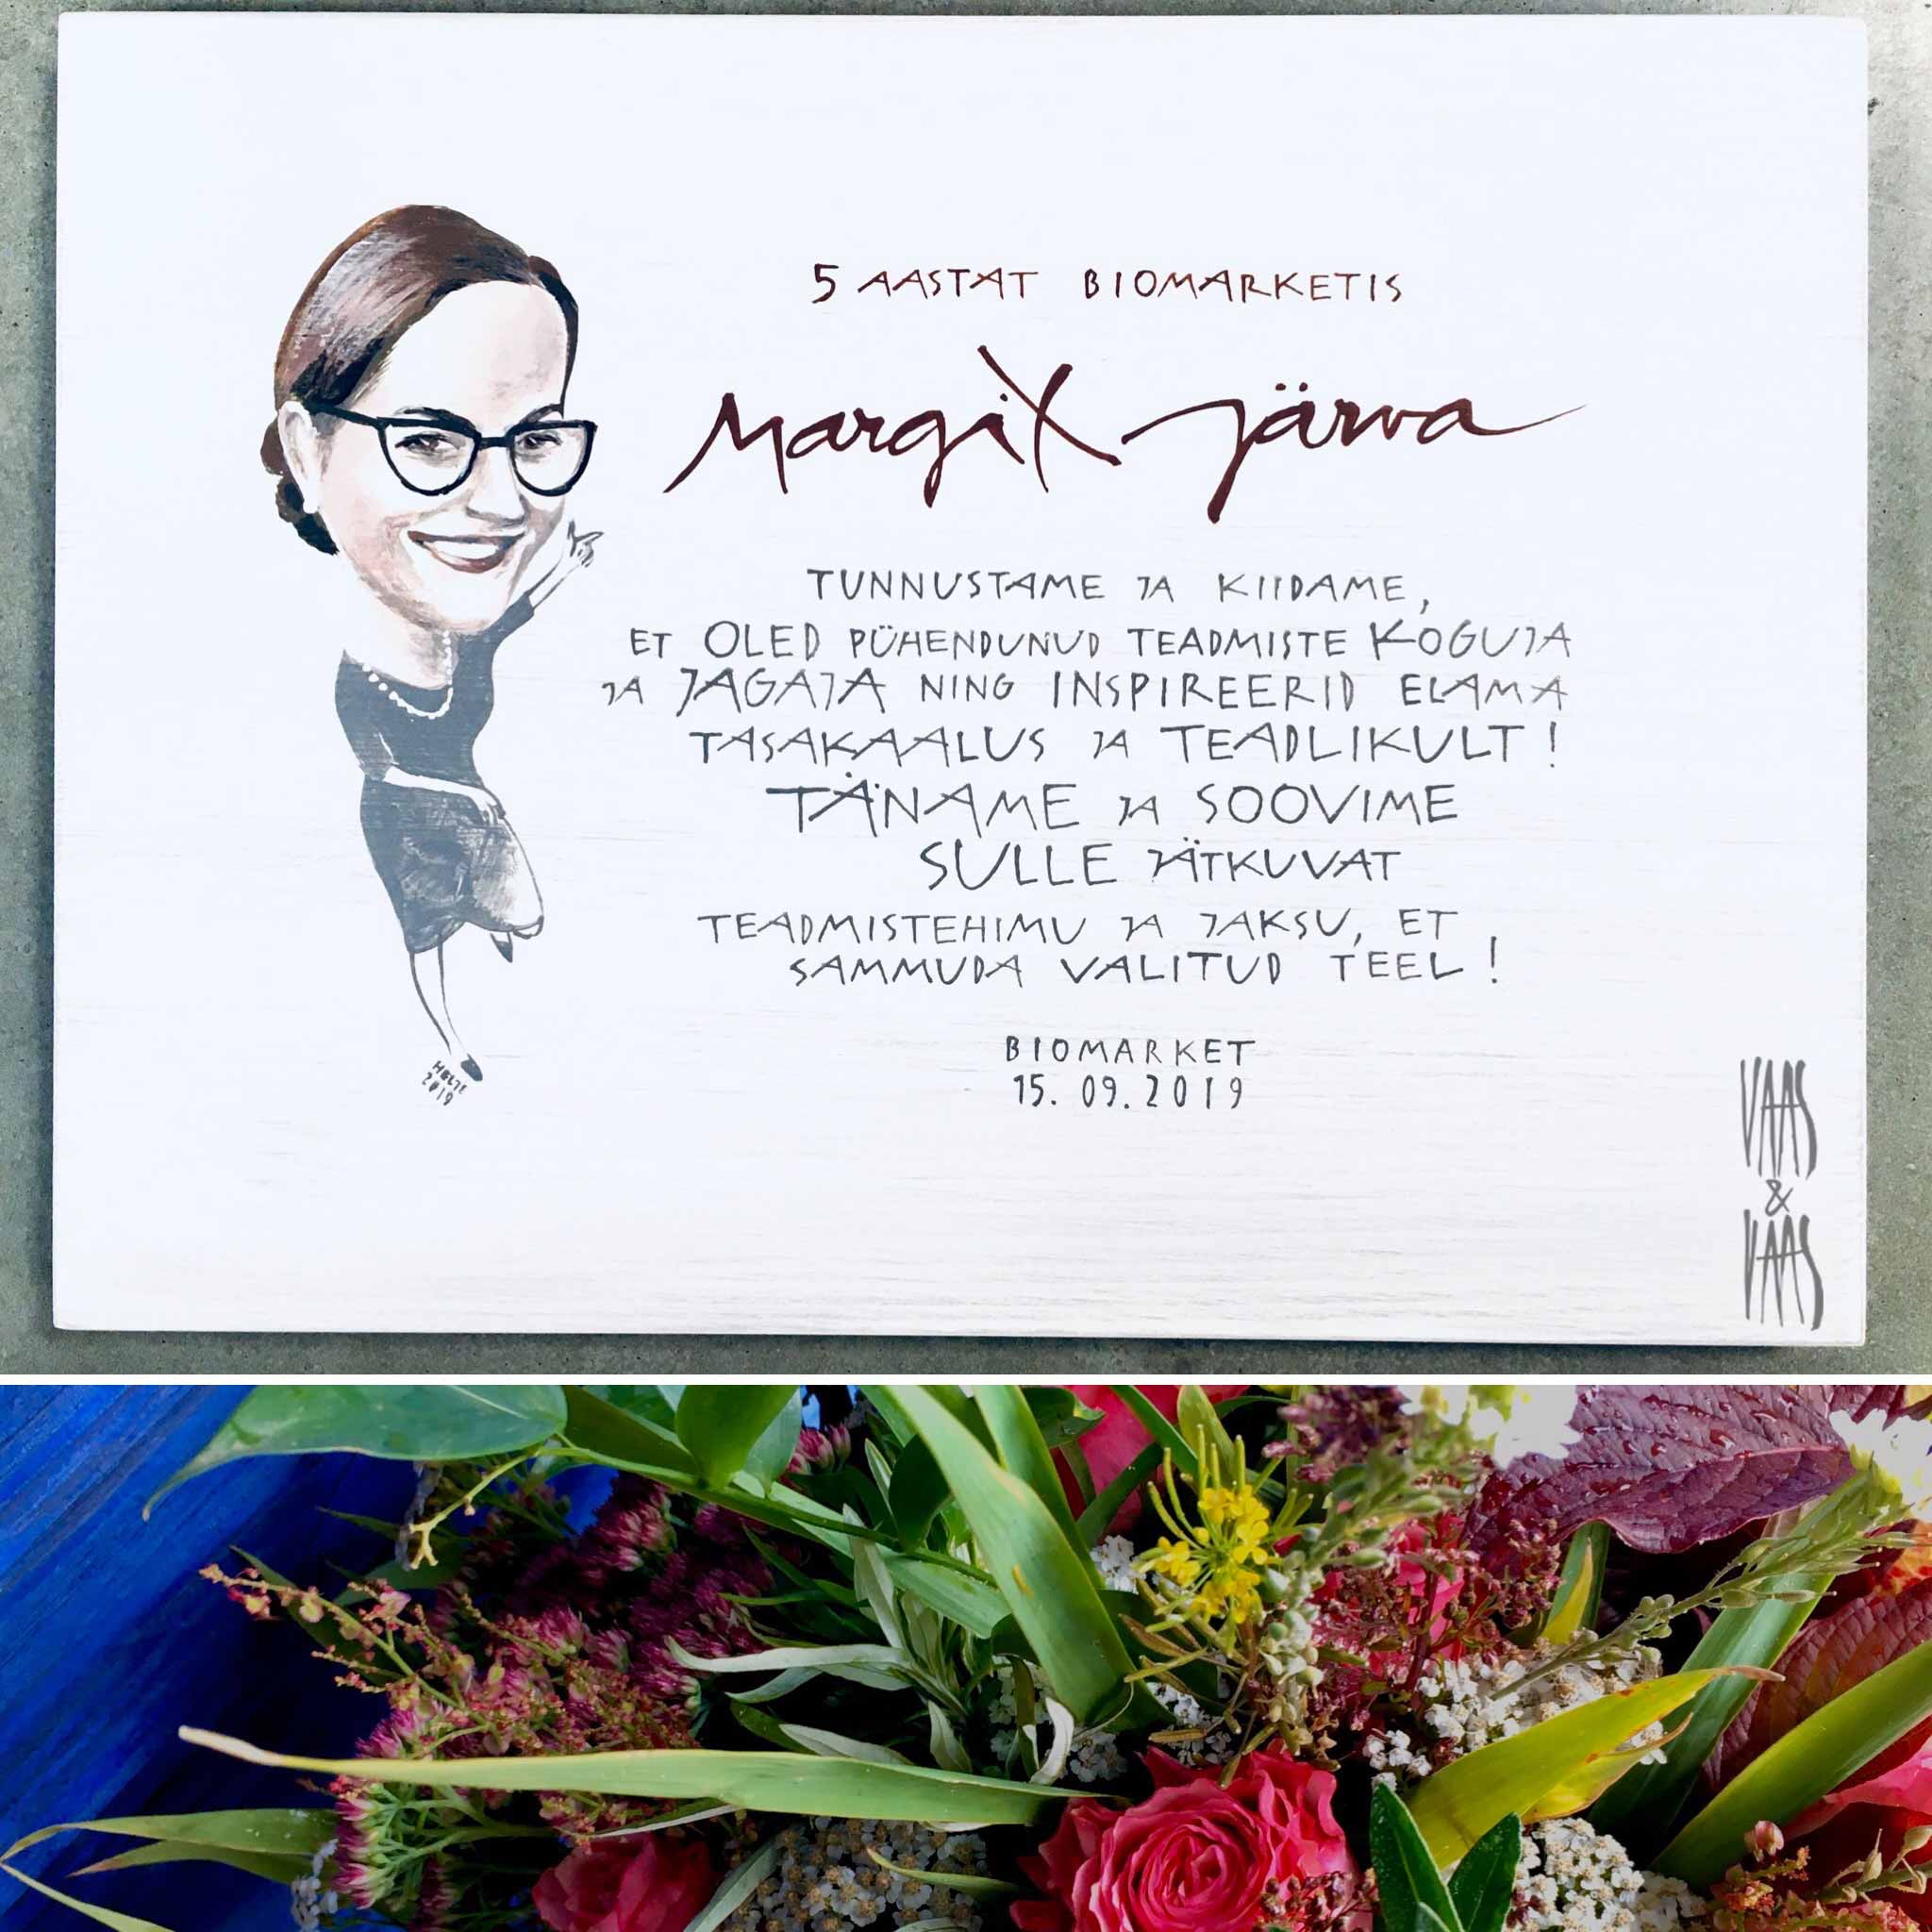 5 AASTAT BIOMARKETIS
Margit Järva
TUNNUSTAME JA KIIDAME,
ET OLED PÜHENDUNUD TEADMISTE KOGUJA
JA JAGAJA NING INSPIREERID ELAMA
TASAKAALUS JA TEADLIKULT!
TÄNAME JA SOOVIME
SULLE JÄTKUVAT
TEADMISTEHIMU JA JAKSU, ET
SAMMUDA VALITUD TEEL!
BIOMARKET
15.09.2019
HELJE
2019
VAAS
&
VAAS